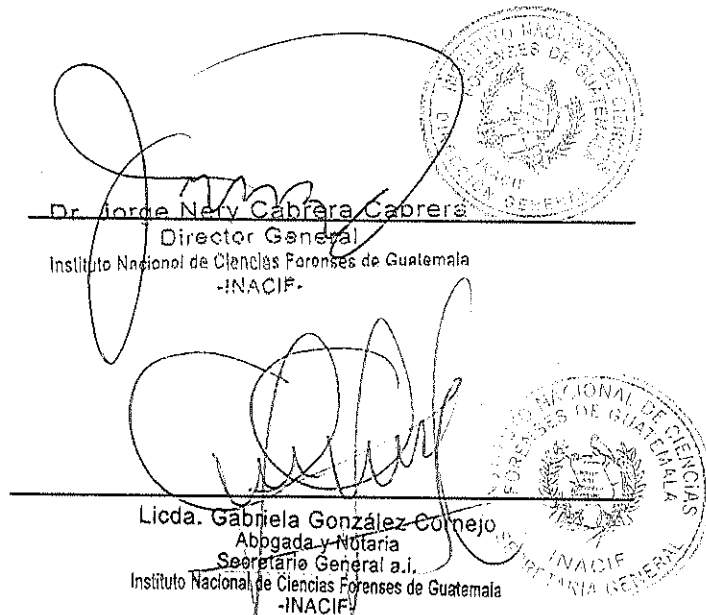 INSTITUTO NACIONAL DE CIENCIAS
FORENSES DE GUATEMALA
INACIF
DIRECCIÓN GENERAL
Dr. Jorge Nery Cabrera Cabrera
Director General
Instituto Nacional de Ciencias Forenses de Guatemala
-INACIF-
INSTITUTO NACIONAL DE CIENCIAS
FORENSES DE GUATEMALA
INACIF
SECRETARIA GENERAL
Licda. Gabriela González Cornejo
Abogada y Notaria
Secretario General a.i.
Instituto Nacional de Ciencias Forenses de Guatemala
-INACIF-